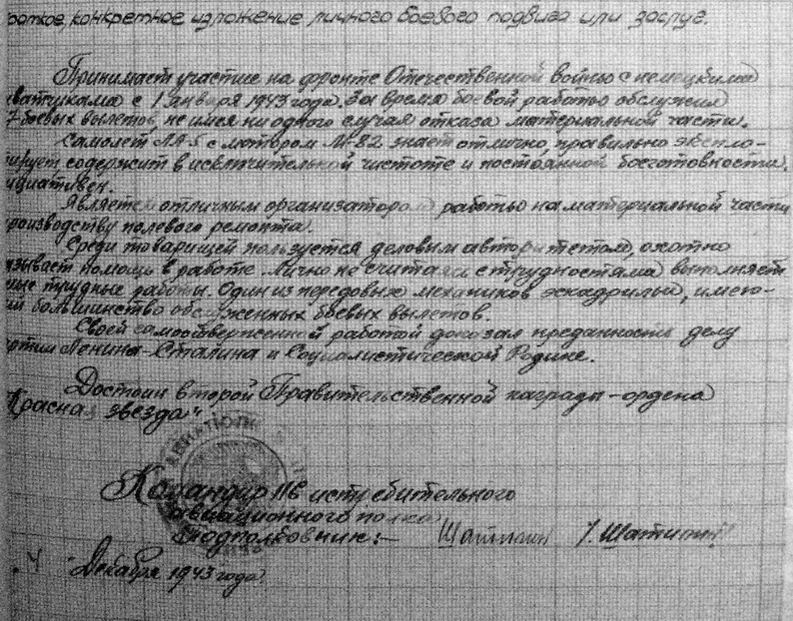 раткое, конкретное изложение личного боевого подвига или заслуг.
Принимает участие на фронте Отечественной войны с немецкими
ватчиками с 1 января 1943 года. За время боевой работы обслужил
7 боевых вылетов, не имея ни одного случая отказа материальной части.
Самолет ЛА-5 с мотором М-82 знает отлично, правильно экспло-
тирует содержит в исключительной чистоте и постоянной боеготовности.
ициативен.
Является отличным организатором работы на материальной части
роизводству полевого ремонта.
Среди товарищей пользуется деловым авторитетом, охотно
азывает помощь в работе. Лично не считаясь с трудностями выполняет
мые трудные работы. Один из передовых механиков эскадрильи, имею-
ий большинство обслуженных боевых вылетов.
Своей самоотверженной работой доказал преданность делу
артии Ленина-Сталина и Социалистической Родине.
Достоин второй Правительственной награды - ордена
"Красная звезда"
Командир истребительного
авиационного полка
Подполковник:-
4 Декабря 1943 года.